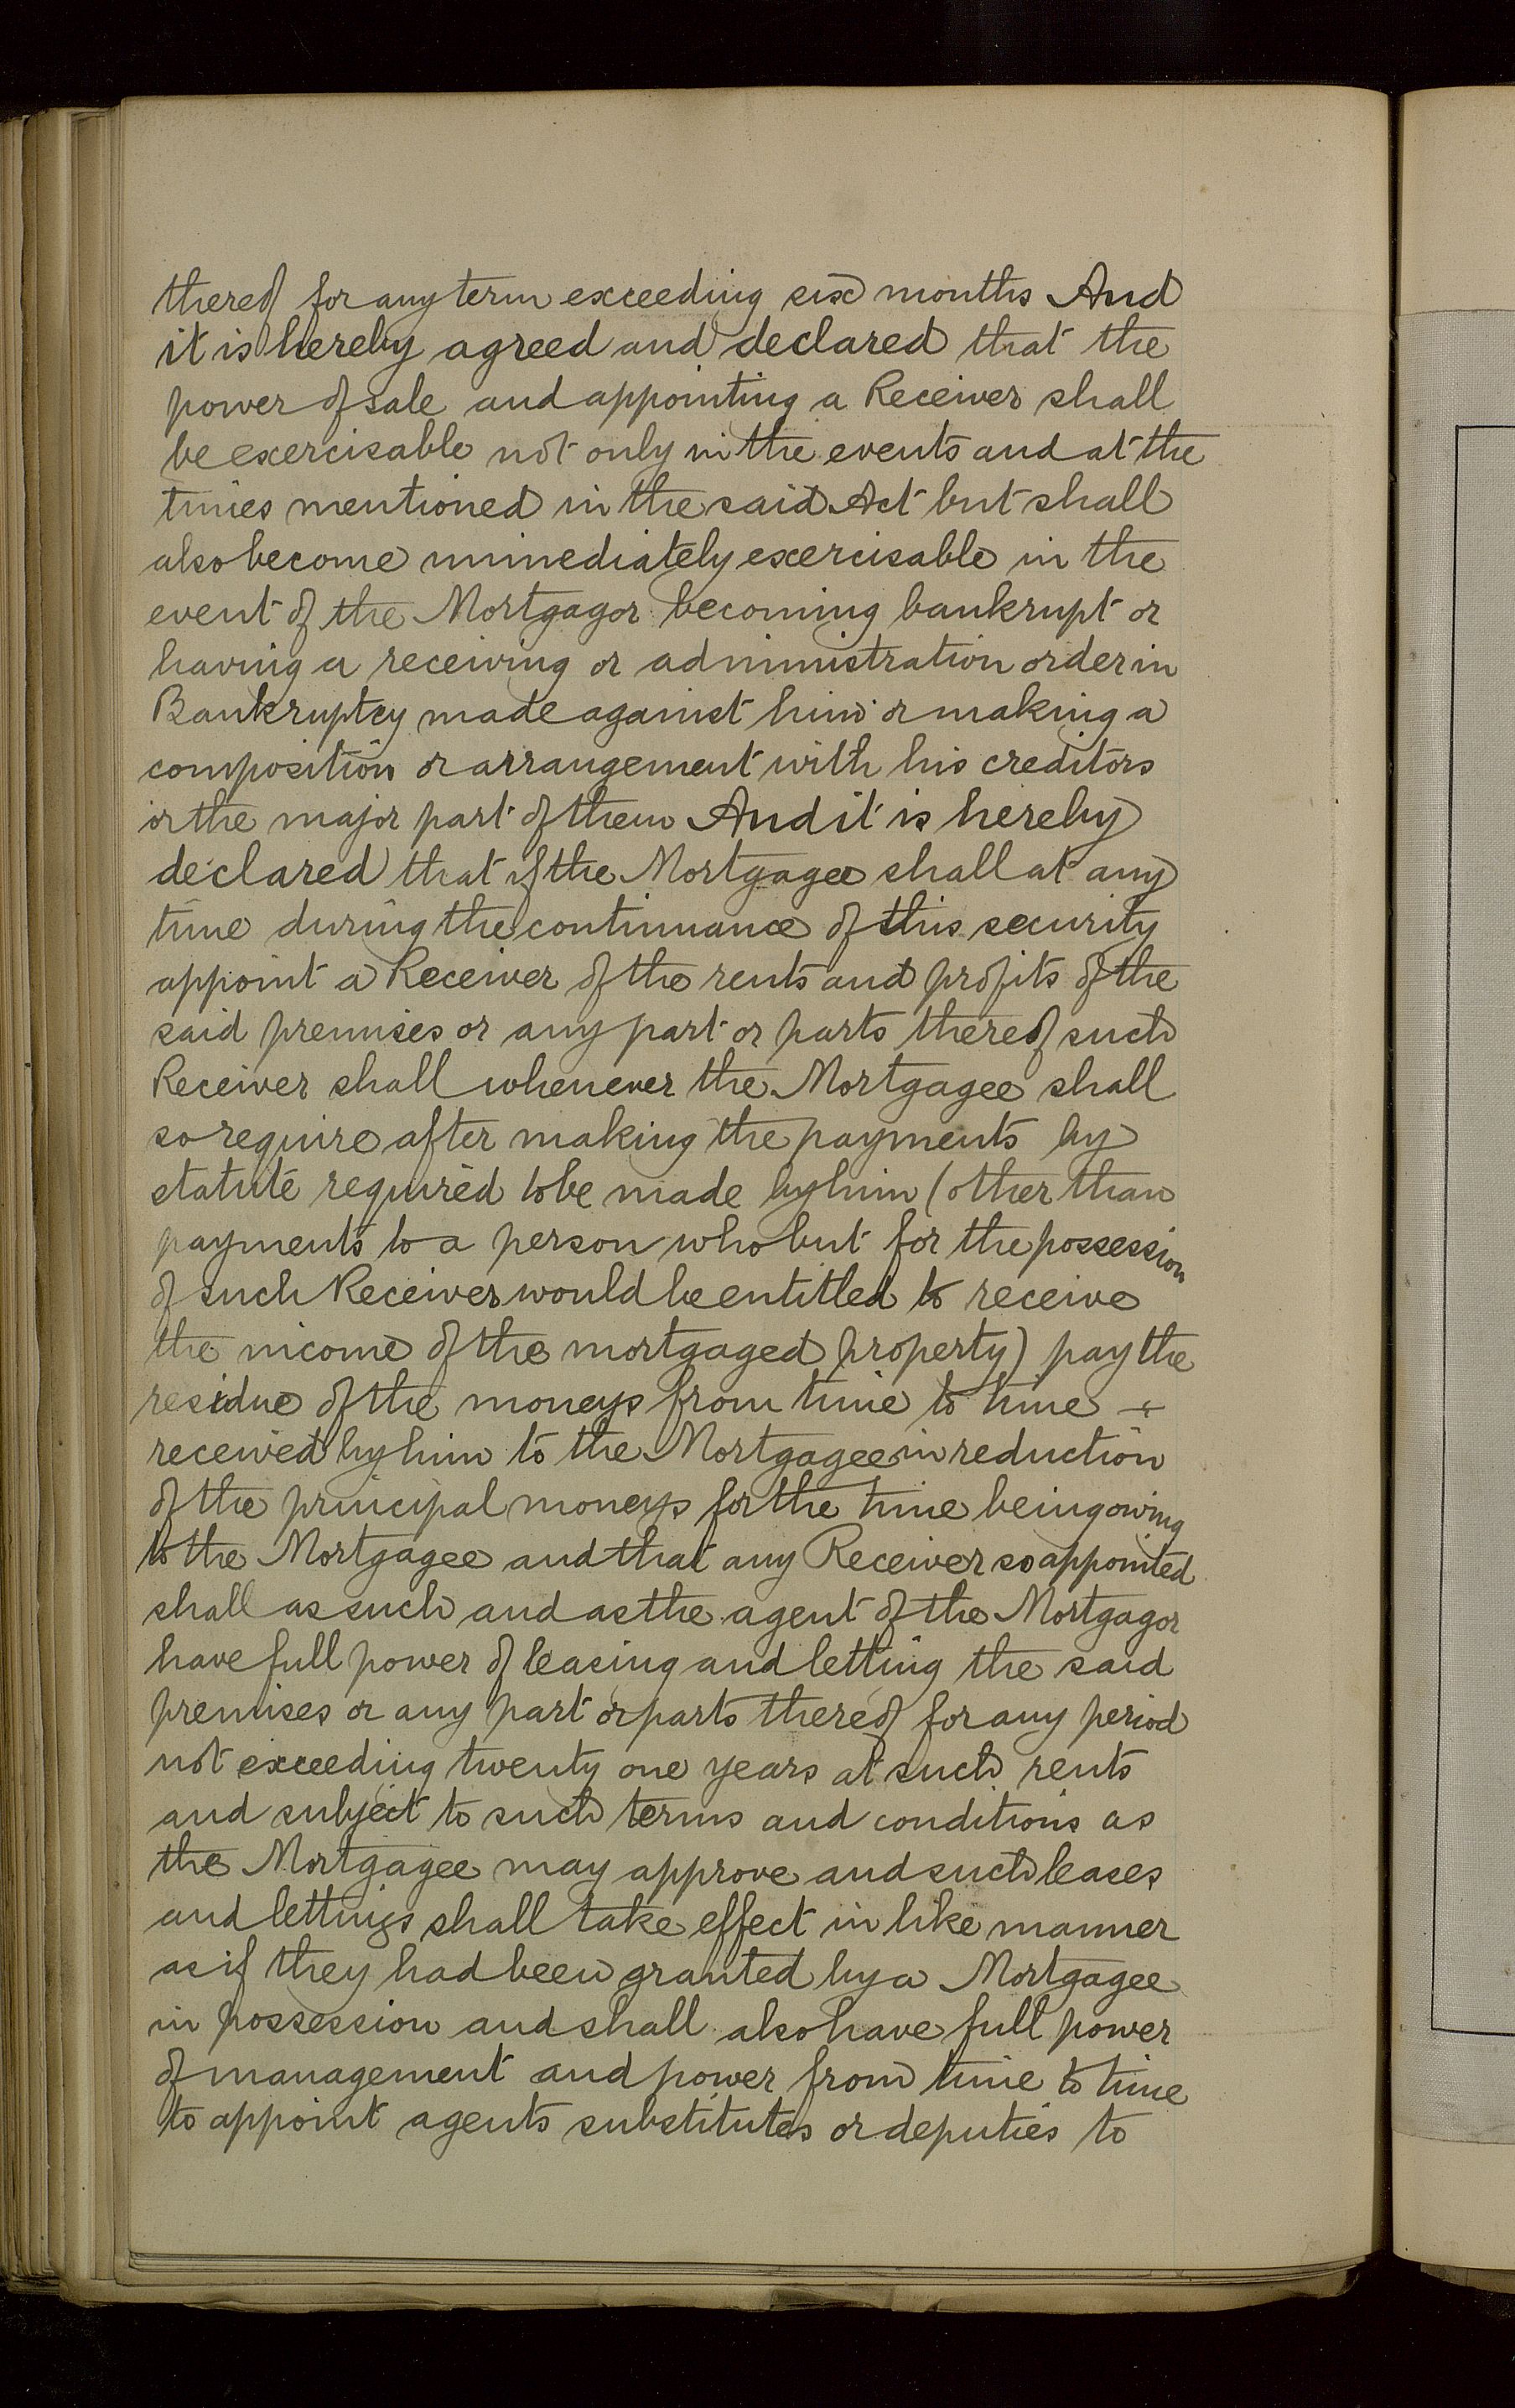 thereof for any term exceeding six months And
it is hereby agreed and declared that the
power of sale and appointing a Receiver shall
be exercisable not only in the events and at the
times mentioned in the said Act but shall
also become immediately exercisable in the
event of the Mortgagor becoming bankrupt or
having a receiving or administration order in
Bankruptcy made against him or making a
composition or arrangement with his creditors
or the major part of them And it is hereby
declared that if the Mortgagee shall at any
time during the continuance of this security
appoint a Receiver of the rents and profits of the
said premises or any part or parts thereof such
Receiver shall whenever the Mortgagee shall
so require after making the payments by
statute required to be made by him (other than
payments to a person who but for the possession
of such Receiver would be entitled to receive
the income of the mortgaged property) pay the
residue of the moneys from time to time
received by him to the Mortgagee in reduction
of the principal moneys for the time being owing
to the Mortgagee and that any Receiver so appointed
shall as such and as the agent of the Mortgagor
have full power of leasing and letting the said
premises or any part or parts thereof for any period
not exceeding twenty one years at such rents
and subject to such terms and conditions as
the Mortgagee may approve and such leases
and lettings shall take effect in like manner
as if they had been granted by a Mortgagee
in possession and shall also have full power
of management and power from time to time
to appoint agents substitutes or deputies to